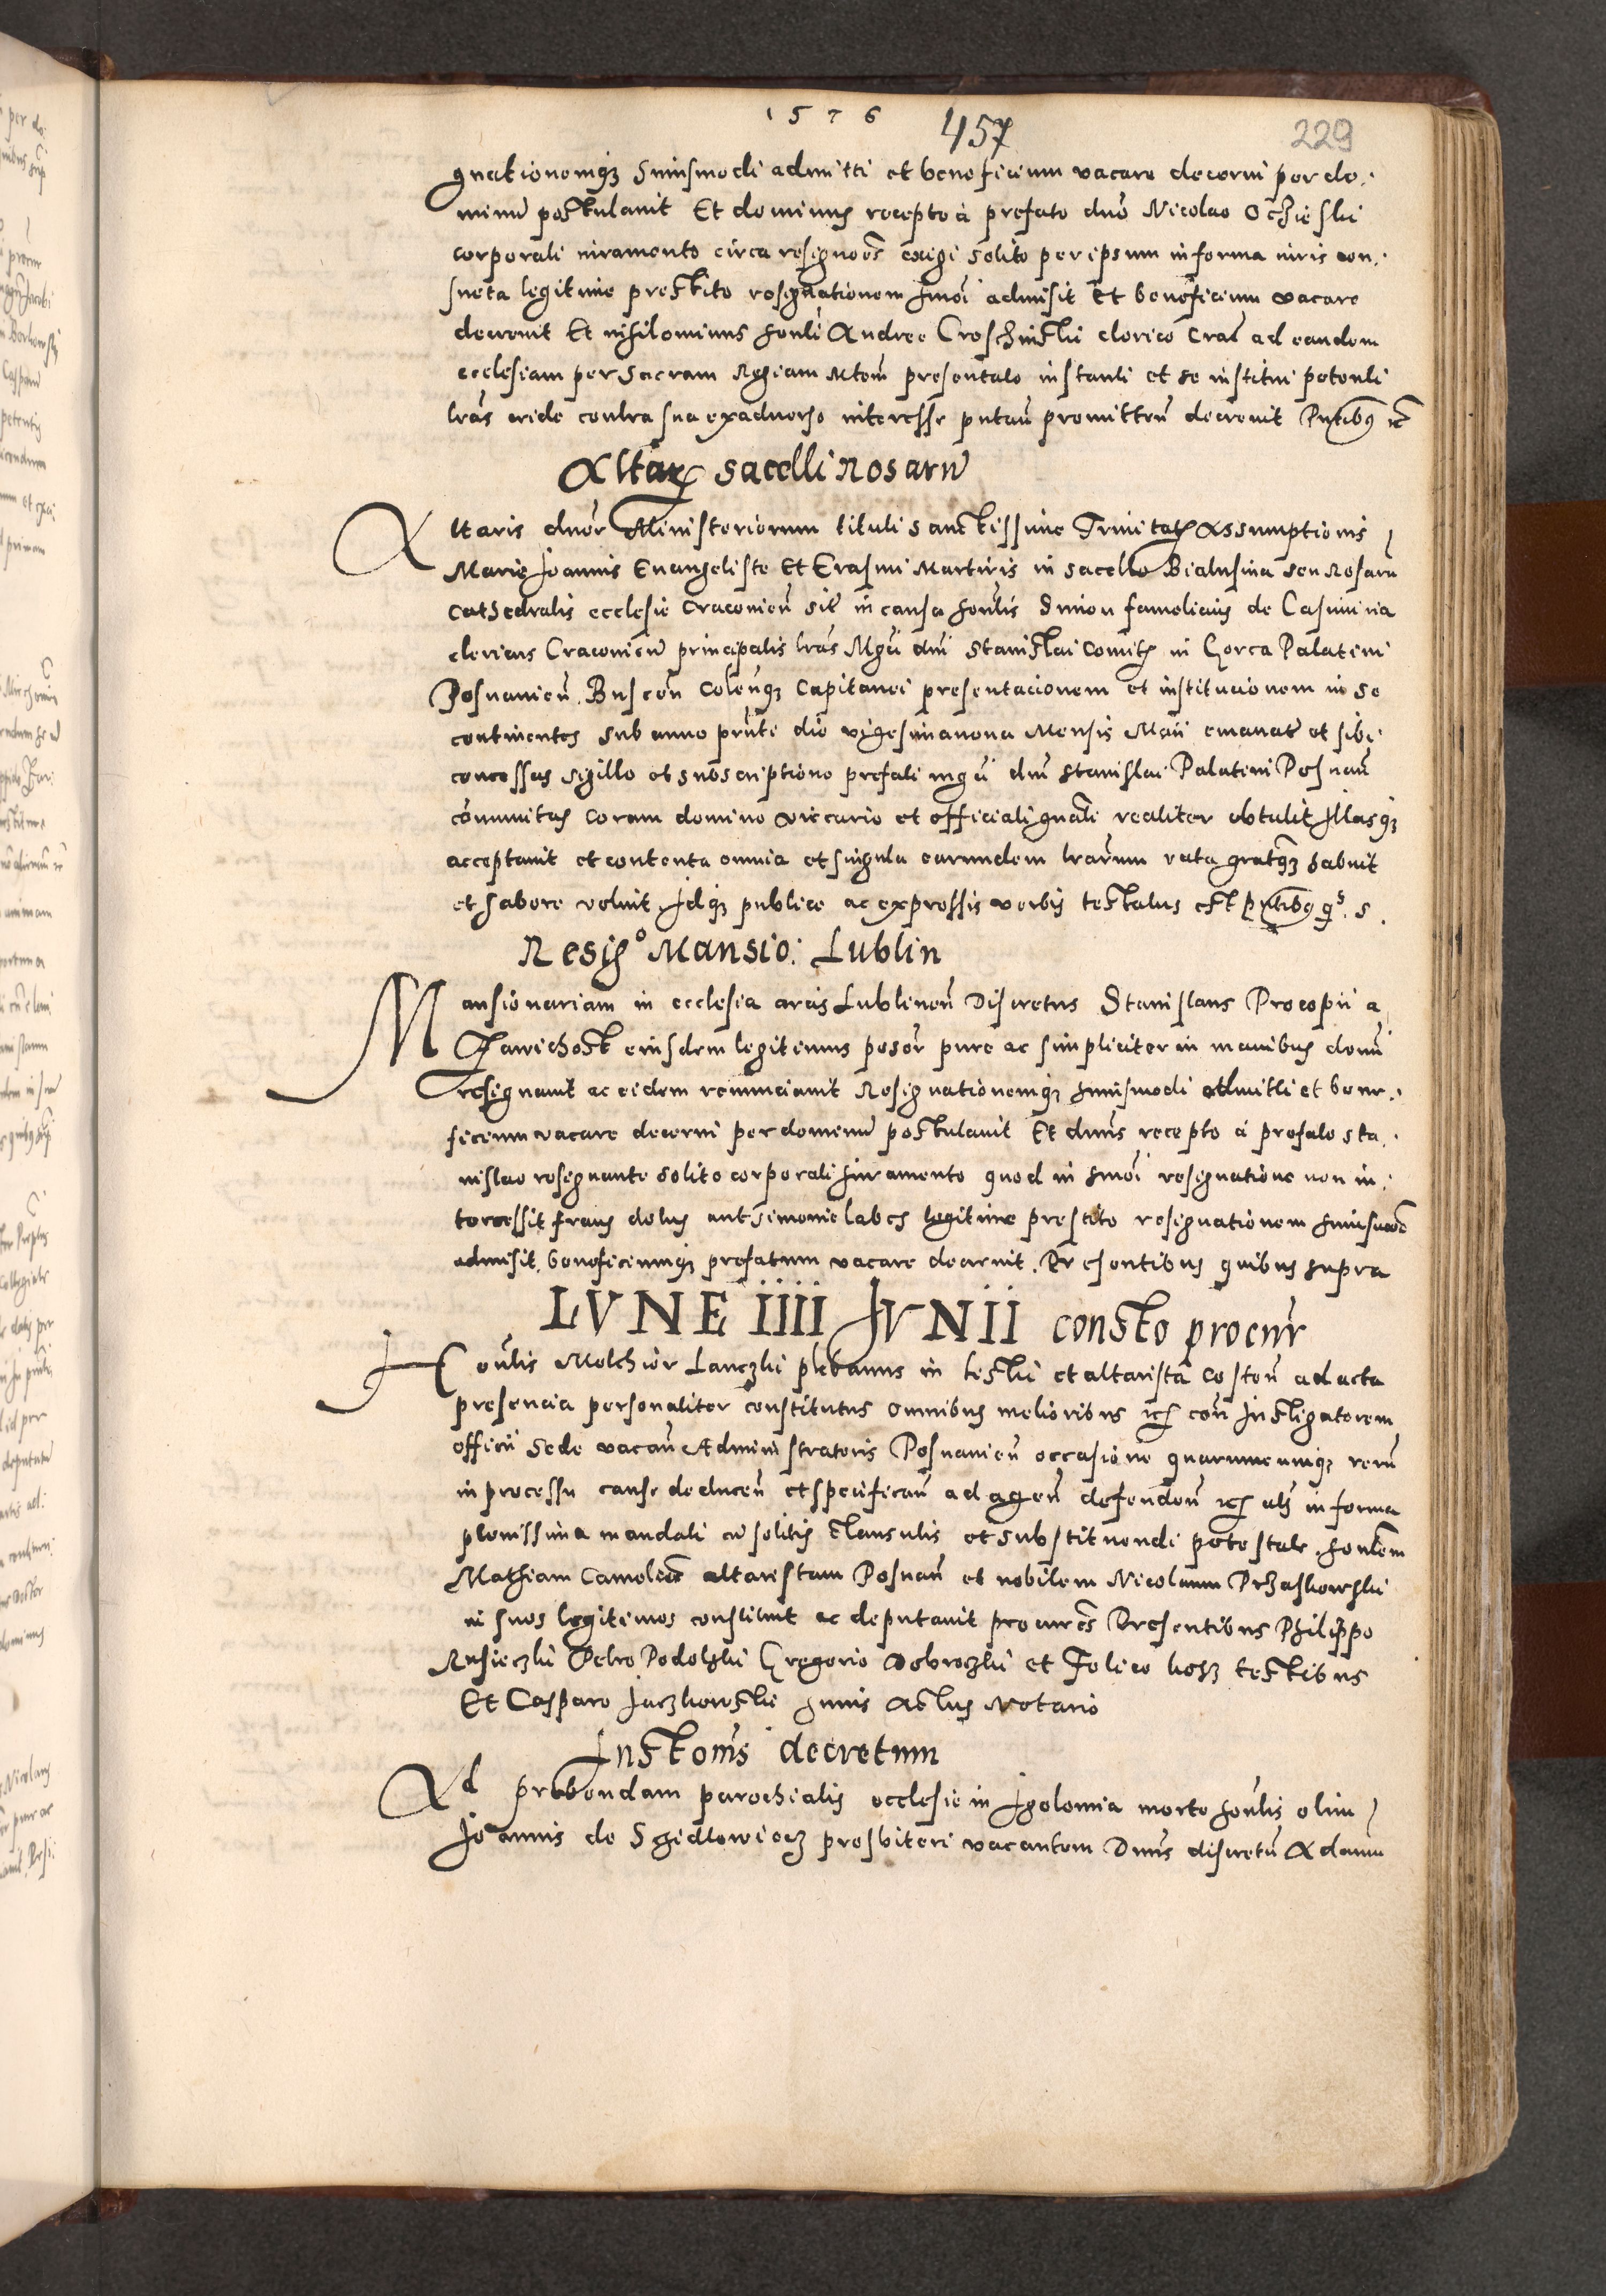 1576 457 229
gnationemq3 huiusmodi admitti et beneficium vacare decerni per do:
minū postulavit Et dominus recepto à prefato dnō Nicolao Ochieski
corporali iuramento circa resignōes exigi solito per ipsum in forma iuris con:
sueta legitime prestito resignationem hmoi admisit Et beneficium vacare
decrevit Et nihilominus honli Andree clerico Crac ad eandem
ecclesiam per Sacram Regiam Mtem presentato instanti et se institui petenti
lras cride contra sua exadverso interesse putan promitten decrevit Pntibus etc
Altaris sacelli Rosarū
Altaris duor Ministeriorum tituli Sanctissime Trinitatis Assumptionis
Marie Joannis Evangeliste Et Erasmi Martiris in sacello Bialusina seu Rosaru
Cathedralis ecclesie Cracovien sit in causa honlis Simon famelicius de Casimiria
clericus Cracovien principalis lras Mgci dni Stanislai Comitis in Gorca Palatini
Posnanien Buscen Colenq3 Capitanei presentacionem et institucionem in se
continentes sub anno pnte die vigesimanona Mensis Maii emanat et sibi
concessas sigillo et subscriptione prefati mgci dni Stanislai Palatini Posnan
communitas coram domino vicario et officiali gnali realiter obtulit Illasq3
acceptavit et contenta omnia et singula earundem lrarum rata grataq3 habuit
et habere voluit Idq3 publice ac expressis verbis testatus est Pntibus qs. s.
Resigo Mansio: Lublin
Mansionariam in ecclesia arcis Lublinen Discretus Stanislaus Procopii a
Zawichost eiusdem legitimus posor pure ac simpliciter in manibus domi
resignavit ac eidem renunciavit Resignationemq3 huiusmodi admitti et bene:
ficium vacare decerni per dominū postulavit Et dnus recepto à prefato Sta:
nislao resignante solito corporali Juramento quod in hmoi resignatione non in:
tercessit fraus dolus aut Simonie labes legitime prestito resignationem huiusmodi
admisit, beneficiumq3 prefatum vacare decrevit. Presentibus quibus supra
LVNE IIII JVNII consto procur
Honlis Melchior Lanczki plebanus in et altarista Costen ad acta
presencia personaliter constitutus omnibus melioribus etc con Instigatorem
officii Sede vacan Administratoris Posnanien occasione quarumcumq3 rerū
in processu cause deducen et specifican ad agen defenden etc als in forma
plenissima mandati cū solitis clausulis et substituendi potestate, honlem
Mathiam altaristam Posnan et nobilem Nicolaum Przaskowski
in suos legitimos constituit ac deputavit procures Presentibus Philippo
Rusieczki Petro Podolski Gregorio Dobroczki et Felice testibus
Et Casparo Juczkowski huius Actus Notario
Instoīs decretum
Ad prebendam parochialis ecclesie in Igolomia morte honlis olim
Joannis de Sgidlowiecz presbiteri vacantem Dnus discretū Adamu